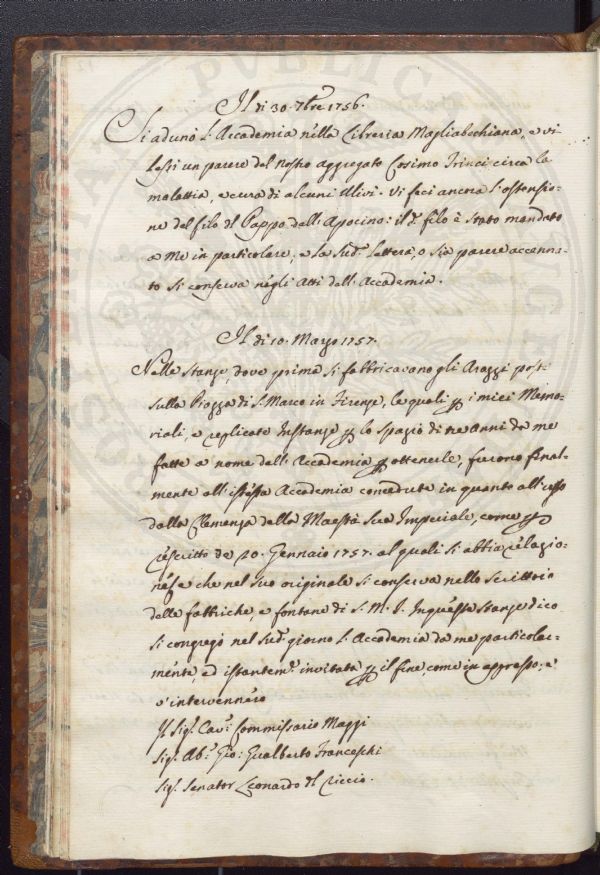 Il dì 30. 7bre 1756.
Si adunò l'Accademia nella Libreria Magliabechiana, e vi
lessi un parere del nostro aggregato Cosimo Trinci circa la
malattia, e cura di alcuni Ulivi. Vi feci ancora l'ostensio-
ne del filo del Pappo dell'Apocino: il d.º filo è stato mandato
a me in particolare, e la sud.ª lettera, o sia parere accenna-
to si conserva negli Atti dell'Accademia.
Il dì 10. Marzo 1757.
Nelle stanze, dove prima si fabbricavano gli Arazzi poste
sulla Piazza di S. Marco in Firenze, le quali p i miei Memo-
riali, e replicate Instanze p lo spazio di tre anni da me
fatte a nome dell'Accademia p ottenerle, furono final-
mente all'istessa Accademia concedute in quanto all'uso
dalla Clemenza della Maestà Sua Imperiale, come p
rescritto de 20. Gennaio 1757. al quale si abbia relazio-
ne, e che nel suo originale si conserva nello Scrittoio
delle fabbriche, e fontane di S. M. I. In queste stanze dico
si congregò nel sud.º giorno l'Accademia da me particolar-
mente, ed istantem.e invitata p il fine, come in appresso; e
v'intervennero
Il Sig.r Cav.r Commissario Mazzi
Sig.r Ab.e Gio: Gualberto Franceschi
Sig.r Senator Leonardo del Riccio.
PUBLICA